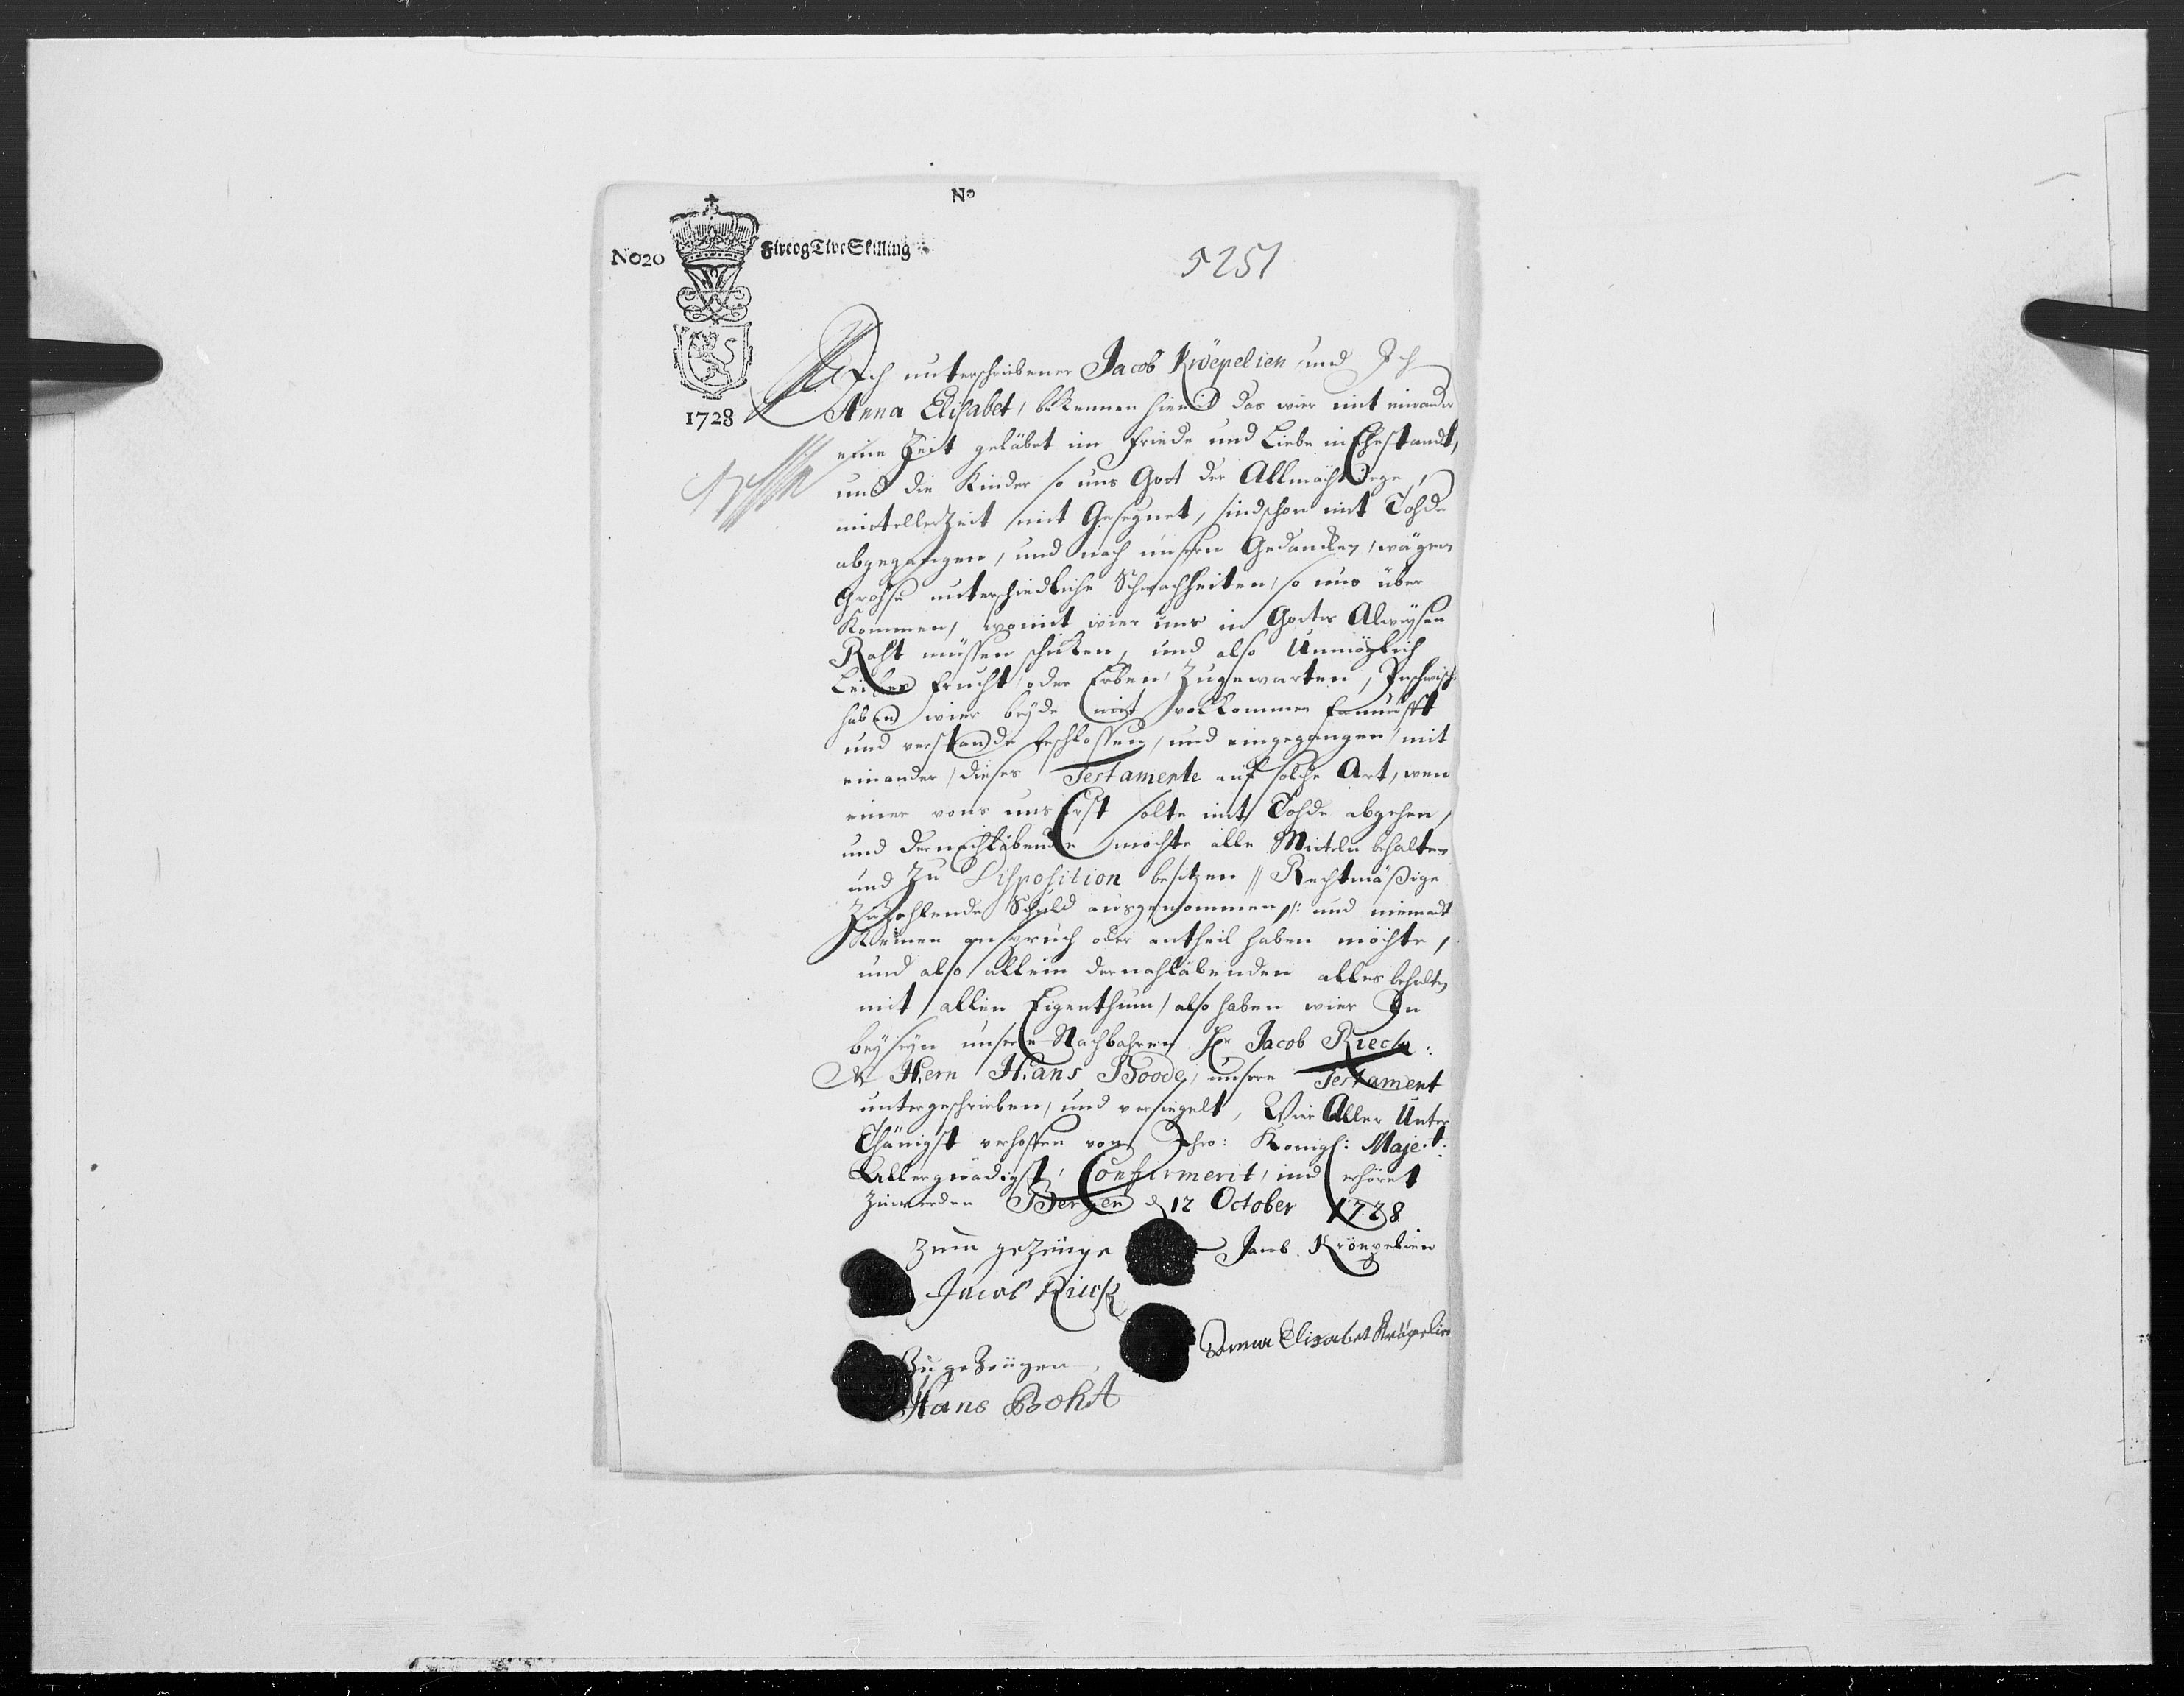 No
No20 Fireog Tive Skilling
5251
1728
Ich unterschriebener Jacob Kröepelien und Ich
Anna Elisabet, bekennen hiemit das wier mit einander
eine Zeit geläbet im Friede und Liebe in Ehestandt,
und die Kinder so uns Gott der Allmächtige,
mittellerzeit mit Gesegnet, sindschon mit Tohde
abgegangen, und nach unsern Gedancken, wägen
Grohse unterschiedliche Schwachheiten, so uns über
Kommen, womit wier uns in Gottes Alweysen
Raht müssen schicken, und also Unmöglich
Leibes Frucht oder Erben, Zugewarten,
haben wier beyde mit vollkommen
und verstande beschlossen, und eingegangen mit
einander, dieses Testamente auf solche Art, wen
einer vons uns Erst solte mit Tohde abgehen,
und der nachläbende möchte alle Mitteln behalten
und Zu Disposition besitzen // Rechtmäßige
Zuzahlende Schuld ausgenommen // und niemadt
Keinen anspruch oder antheil haben möchte,
und also allein der nahläbenden alles behalten
mit allen Eigenthum, also haben wier In
beyseyn unsere Nachbahren Hr Jacob Rieck:
& Hern Hans Boode, unsere Testament
untergeschrieben, und versiegelt, Wier Aller Unter
Thänigst verhoffen von Ihro: Königl: Majet:
Allergnädigst, Confirmerit, und erhöret
Zuwerden Bergen d 12 October 1728
Zum gezeüge Jacob Kröepelien
Jacob Rieck
Anna Elisabet Kröpelien
Zu gezeügen
Hans Boht